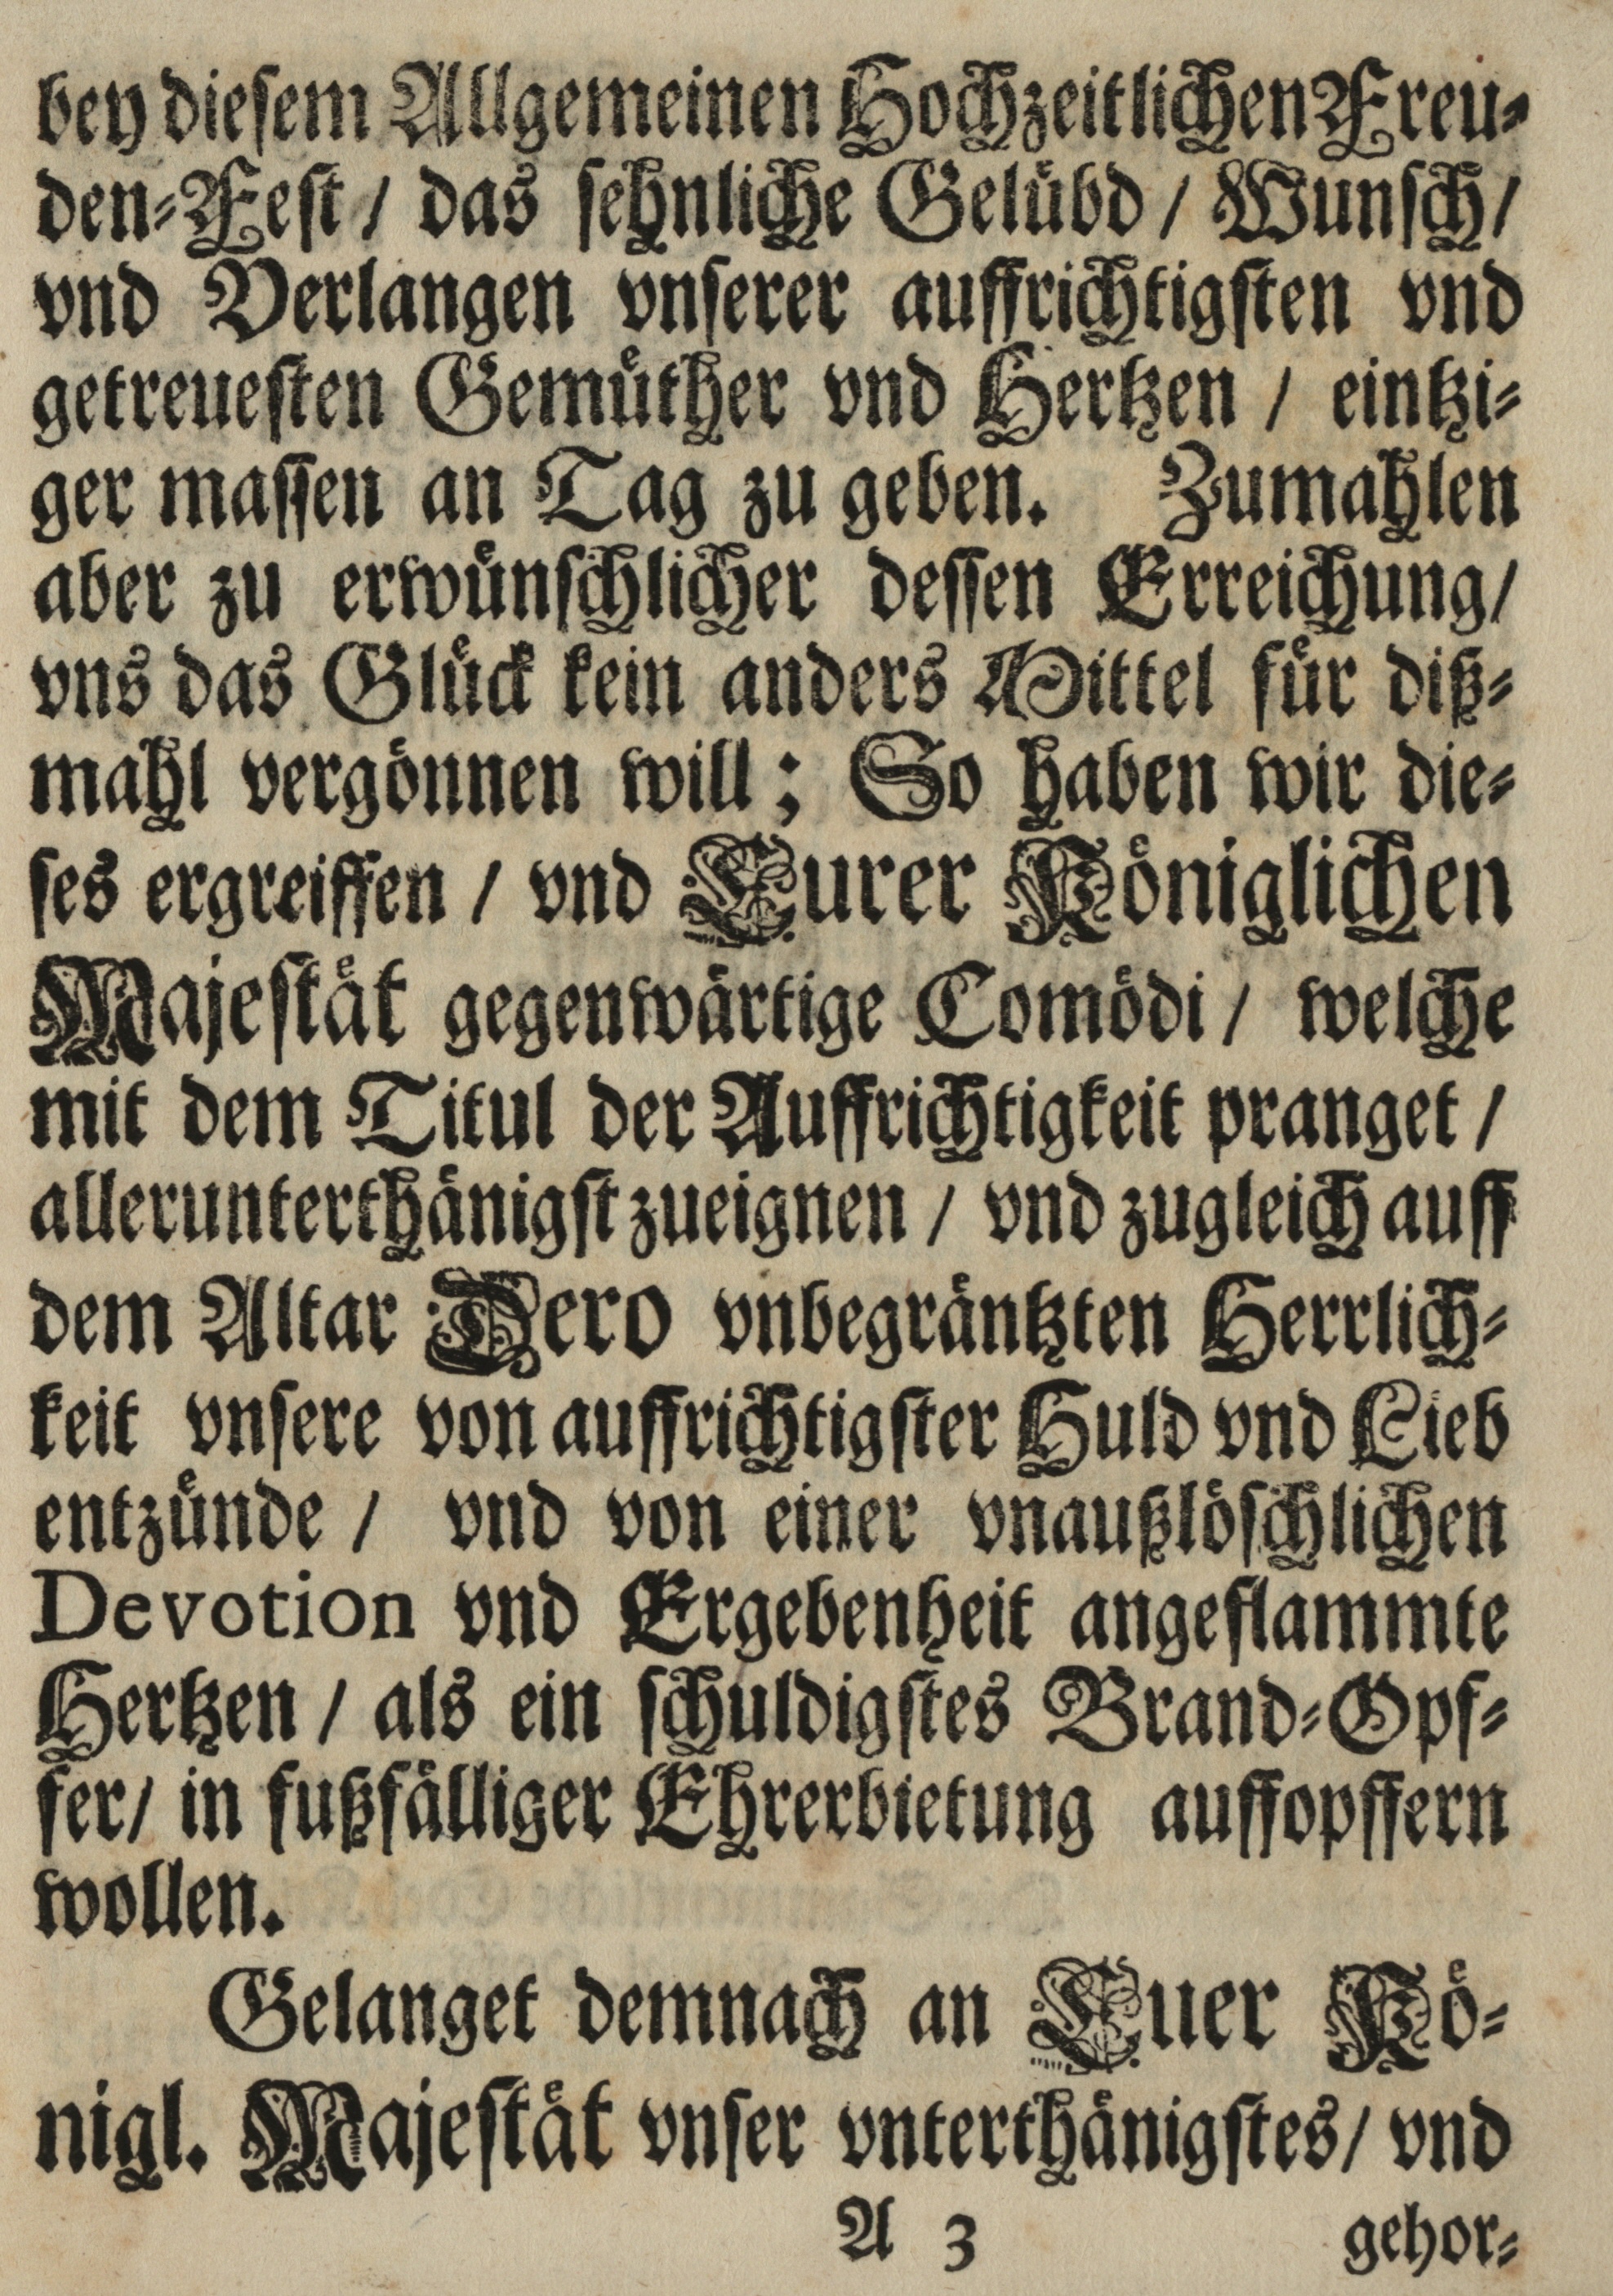 bey diesem Allgemeinen Hochzeitlichen Freu-
den-Fest / das sehnliche Gelübd / Wunsch /
vnd Verlangen vnserer auffrichtigsten vnd
getreuesten Gemüther vnd Hertzen / eintzi-
ger massen an Tag zu geben. Zumahlen
aber zu erwünschlicher dessen Erreichung /
vns das Glück kein anders Mittel für diß-
mahl vergönnen will ; So haben wir die-
ses ergreiffen / vnd Eurer Königlichen
Majestät gegenwärtige Comödi / welche
mit dem Titul der Auffrichtigkeit pranget /
allerunterthänigst zueignen / vnd zugleich auff
dem Altar Dero vnbegräntzten Herrlich-
keit vnsere von auffrichtigster Huld vnd Lieb
entzünde / vnd von einer vnaußlöschlichen
Devotion vnd Ergebenheit angeflammte
Hertzen / als ein schuldigstes Brand-Opf-
fer / in fußfälliger Ehrerbietung auffopffern
wollen.
Gelanget demnach an Euer Kö-
nigl. Majestät vnser vnterthänigstes / vnd
A 3 gehor-